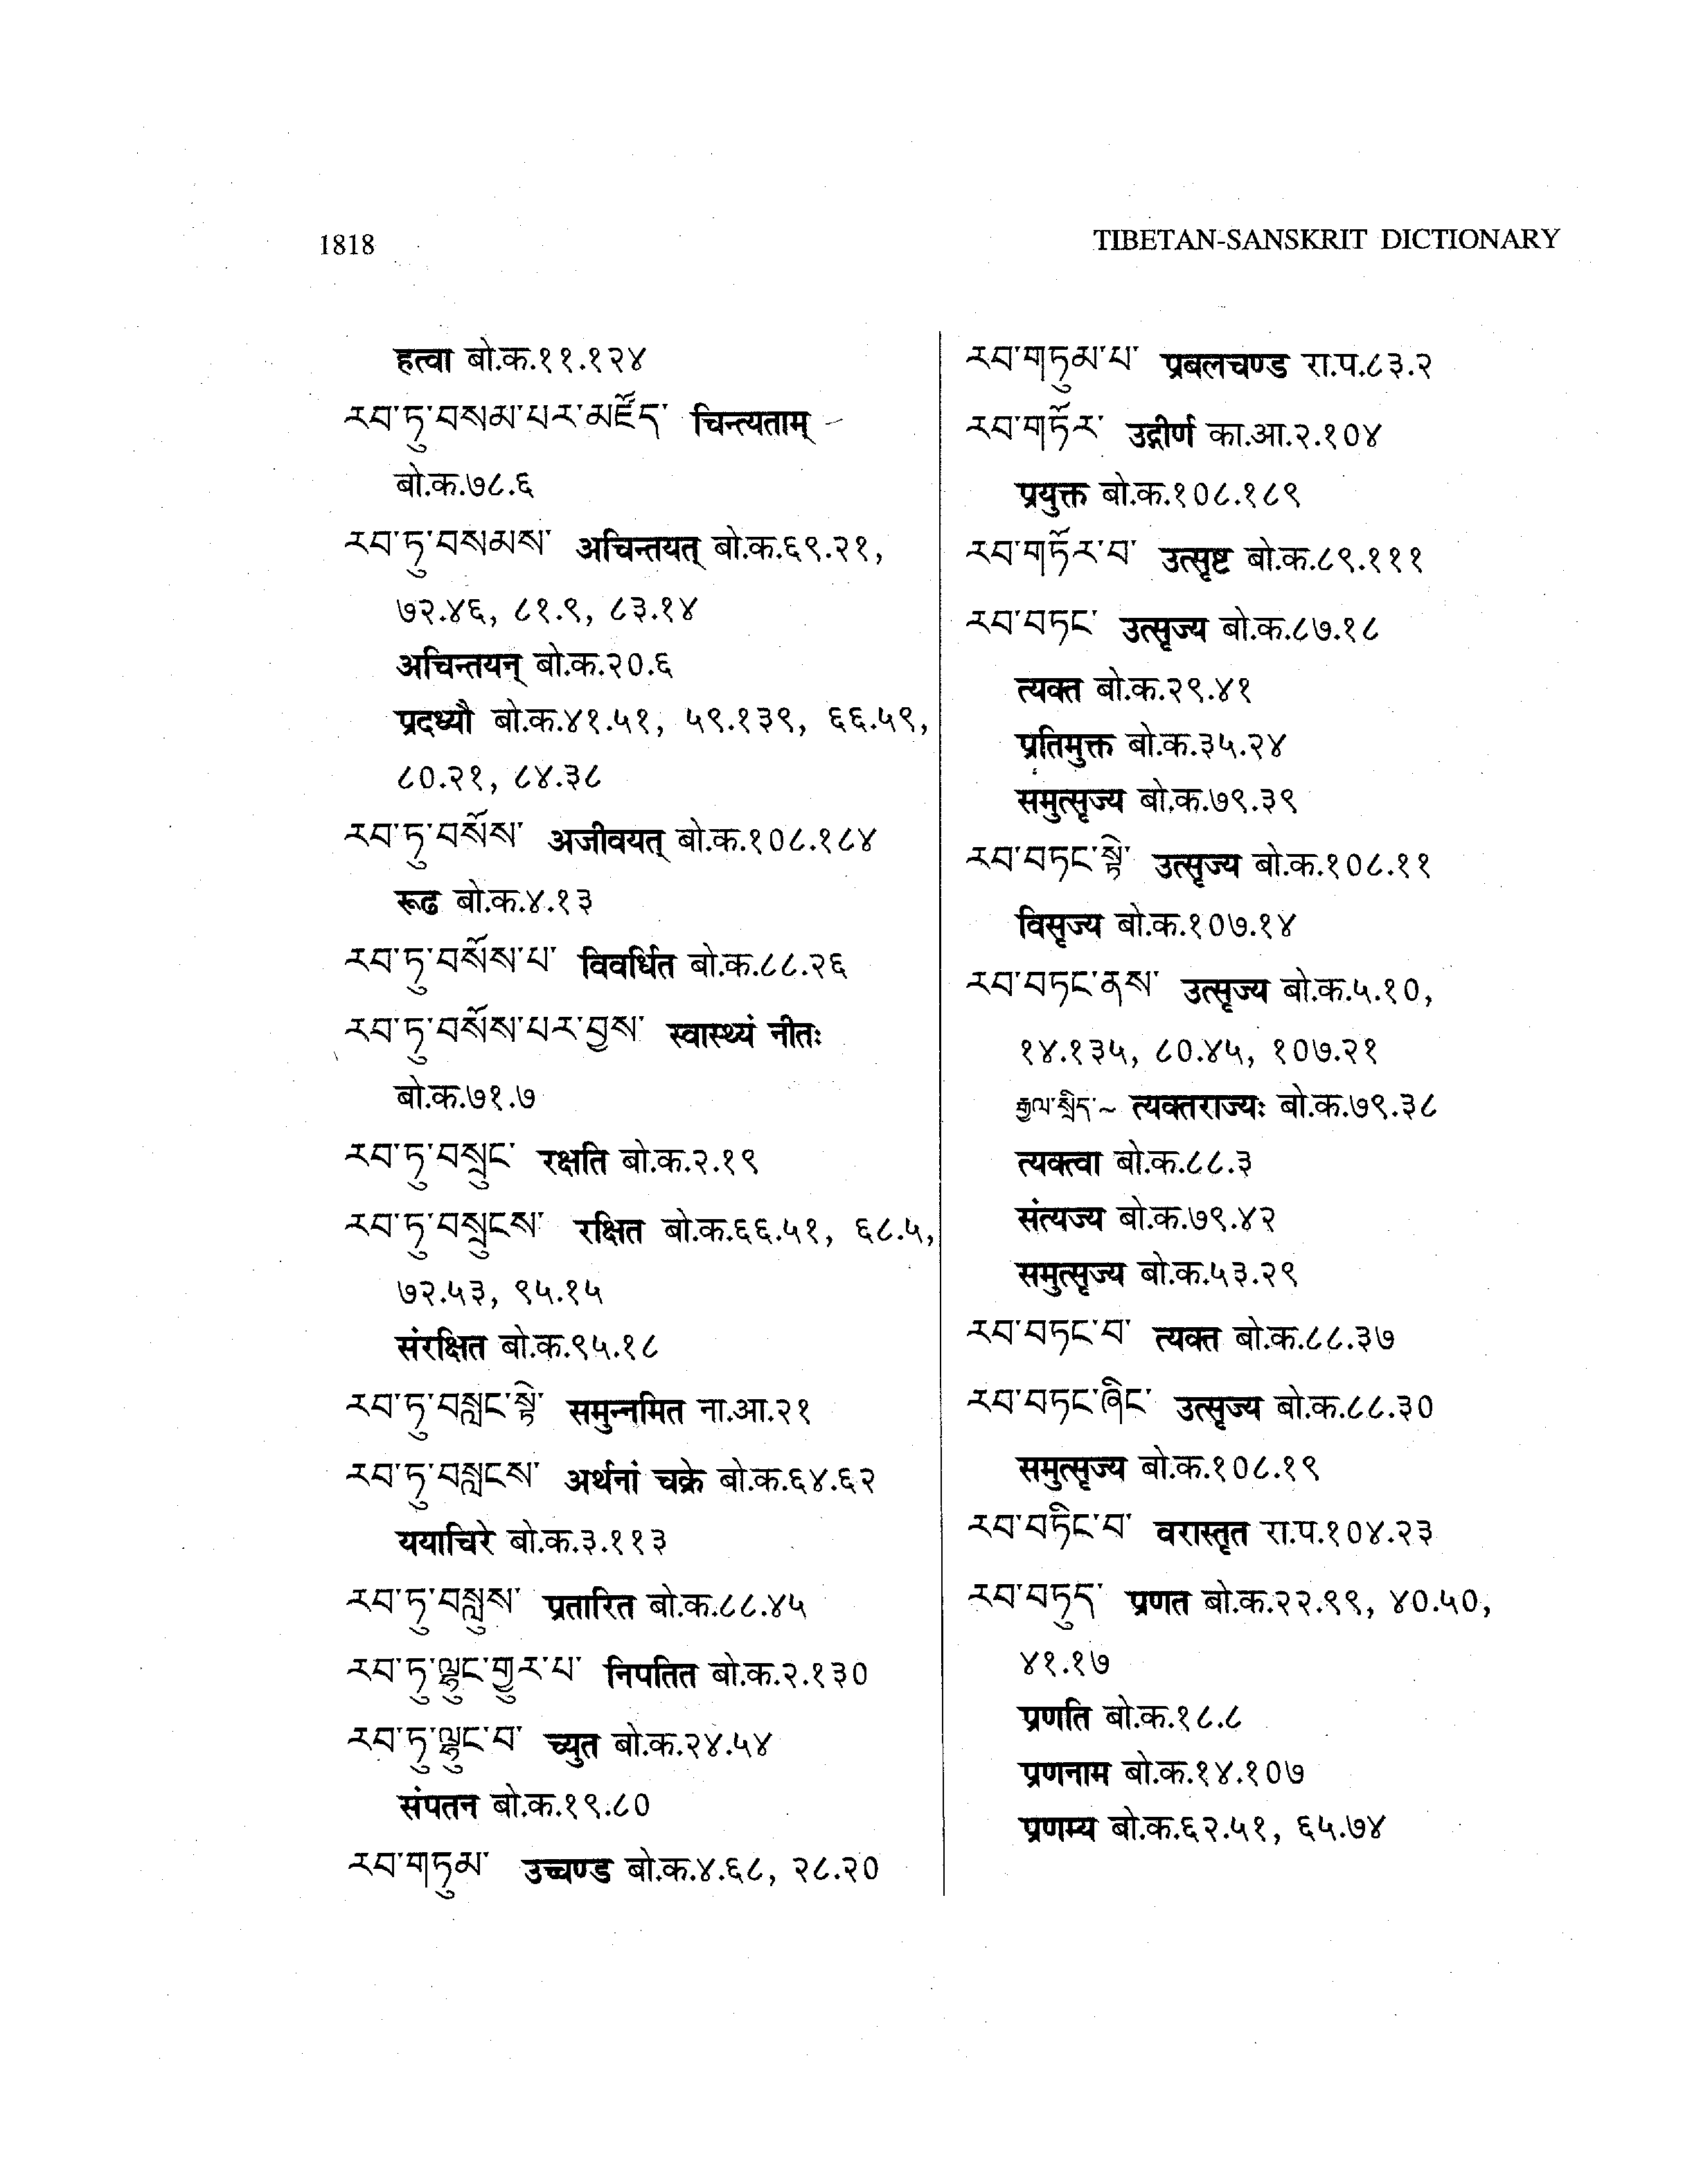 1818
TIBETAN-SANSKRIT DICTIONARY
हत्वा बो.क.११.१२४
རབ་ཏུ་བསམ་པར་མཛོད་ चिन्त्यताम्
बो.क.७८.६
རབ་ཏུ་བསམས་ अचिन्तयत् बो.क.६९.२१,
७२.४६, ८१.९, ८३.१४
अचिन्तयन् बो.क.२०.६
प्रदध्यौ बो.क.४१.५१, ५९.१३९, ६६.५९,
८०.२१, ८४.३८
རབ་ཏུ་བསོས་ अजीवयत् बो.क.१०८.१८४
रूढ बो.क.४.१३
རབ་ཏུ་བསོས་པ་ विवर्धित बो.क.८८.२६
རབ་ཏུ་བསོས་པར་བྱས་ स्वास्थ्यं नीतः
बो.क.७१.७
རབ་ཏུ་བསྲུང་ रक्षति बो.क.२.१९
རབ་ཏུ་བསྲུངས་ रक्षित बो.क.६६.५१, ६८.५,
७२.५३, ९५.१५
संरक्षित बो.क.९५.१८
རབ་ཏུ་བསླང་སྟེ་ समुन्नमित ना.आ.२१
རབ་ཏུ་བསླངས་ अर्थनां चक्रे बो.क.६४.६२
ययाचिरे बो.क.३.११३
རབ་ཏུ་བསླུས་ प्रतारित बो.क.८८.४५
རབ་ཏུ་ལྷུང་གྱུར་པ་ निपतित बो.क.२.१३०
རབ་ཏུ་ལྷུང་བ་ च्युत बो.क.२४.५४
संपतन बो.क.१९.८०
རབ་གཏུམ་ उच्चण्ड बो.क.४.६८, २८.२०
རབ་གཏུམ་པ་ प्रबलचण्ड रा.प.८३.२
རབ་གཏོར་ उद्गीर्ण का.आ.२.१०४
प्रयुक्त बो.क.१०८.१८९
རབ་གཏོར་བ་ उत्सृष्ट बो.क.८९.१११
རབ་བཏང་ उत्सृज्य बो.क.८७.१८
त्यक्त बो.क.२९.४१
प्रतिमुक्त बो.क.३५.२४
समुत्सृज्य बो.क.७९.३९
རབ་བཏང་སྟེ་ उत्सृज्य बो.क.१०८.११
विसृज्य बो.क.१०७.१४
རབ་བཏང་ནས་ उत्सृज्य बो.क.५.१०,
१४.१३५, ८०.४५, १०७.२१
རྒྱལ་སྲིད་~ त्यक्तराज्यः बो.क.७९.३८
त्यक्त्वा बो.क.८८.३
संत्यज्य बो.क.७९.४२
समुत्सृज्य बो.क.५३.२९
རབ་བཏང་བ་ त्यक्त बो.क.८८.३७
རབ་བཏང་ཞིང་ उत्सृज्य बो.क.८८.३०
समुत्सृज्य बो.क.१०८.१९
རབ་བཏིང་བ་ वरास्तृत रा.प.१०४.२३
རབ་བཏུད་ प्रणत बो.क.२२.९९, ४०.५०,
४१.१७
प्रणति बो.क.१८.८
प्रणनाम बो.क.१४.१०७
प्रणम्य बो.क.६२.५१, ६५.७४